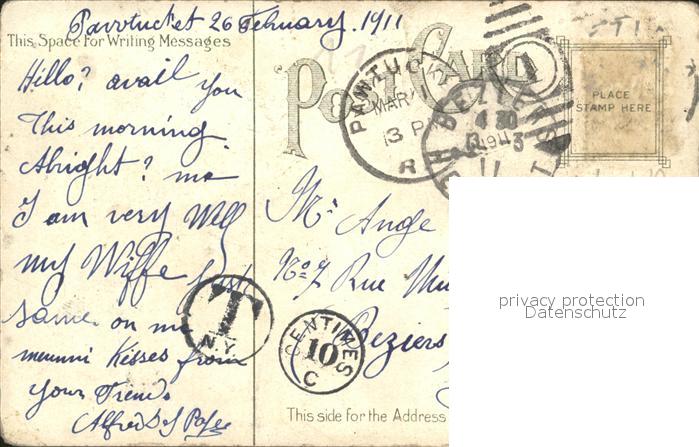 Pawtucket 26 February. 1911
This Space For Writing Messages
POST CARD
Hello? avail you
This morning
Alright? me
I am very Well
my Wiffe just
same. on me
Kisses from
your Friend.
Alfred
PAWTUCK
MAR 1
3 P
R
BEZIERS
4 30
-3
11
PLACE
STAMP HERE
Mr Ange
No 7 Rue
Beziers
T
N.Y.
CENTIMES
10
C
This side for the Address
privacy protection
Datenschutz